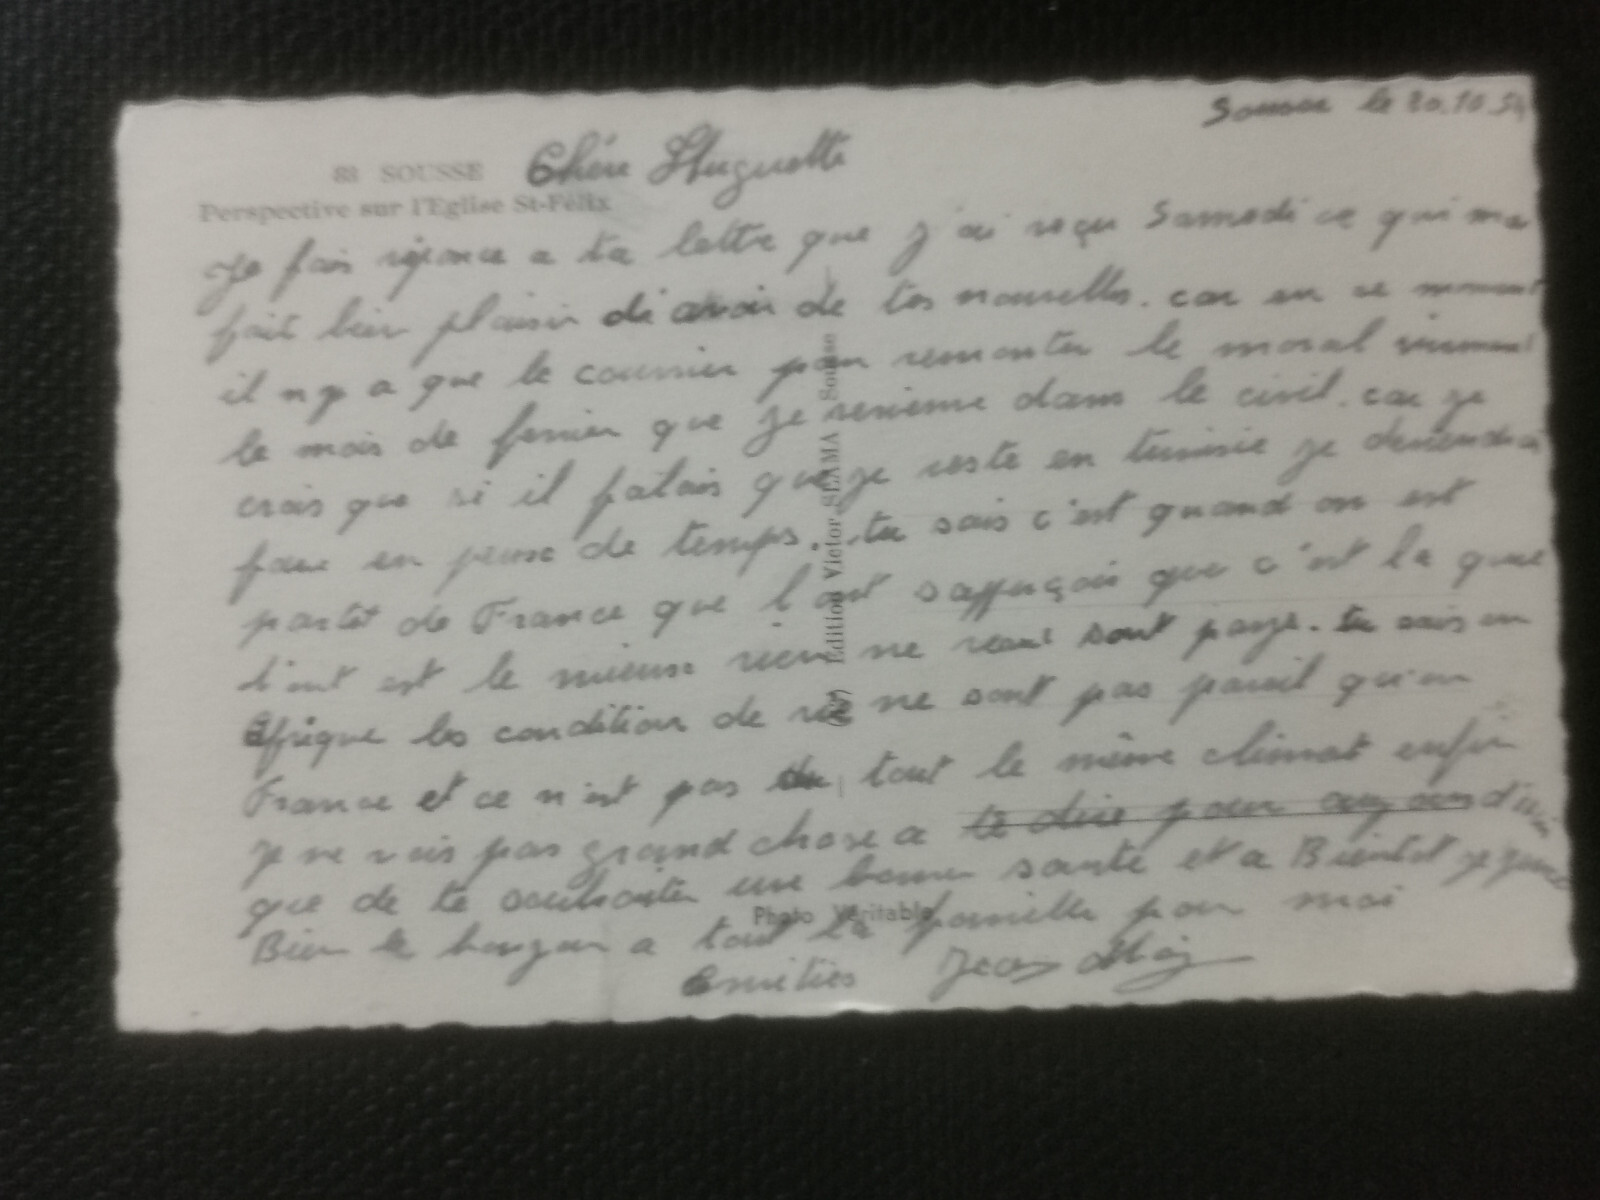 Sousse le 20.10.54
88 SOUSSE
Chére Huguette
Perspective sur l'Eglise St-Félix
Je fais réponce a ta lettre que j'ai reçu Samedi ce qui ma
fait bien plaisir de avoir de tes nouvelles. car en ce moment
il n y a que le courrier pour remonter le moral vivement
le mois de fevrier que je revienne dans le civil. car je
crois que si il falais que je reste en tunisie je
en peuse de temps. tu sais c'est quand on est
partit de France que l'ont s'apperçois que c'est la que
l'ont est le mieuse rien ne vaut sont pays. tu sais en
Afrique les condition de vie ne sont pas pareil qu'en
France et ce n'est pas du tout le même climat enfin
je ne vois pas grand chose a te dire pour
que de te souhaiter une bonne santé et a Bientot
Bien le bonjour a tout la famille pour moi
Amitiés Jean
Edition Victor SLAMA Sousse
Photo Véritable